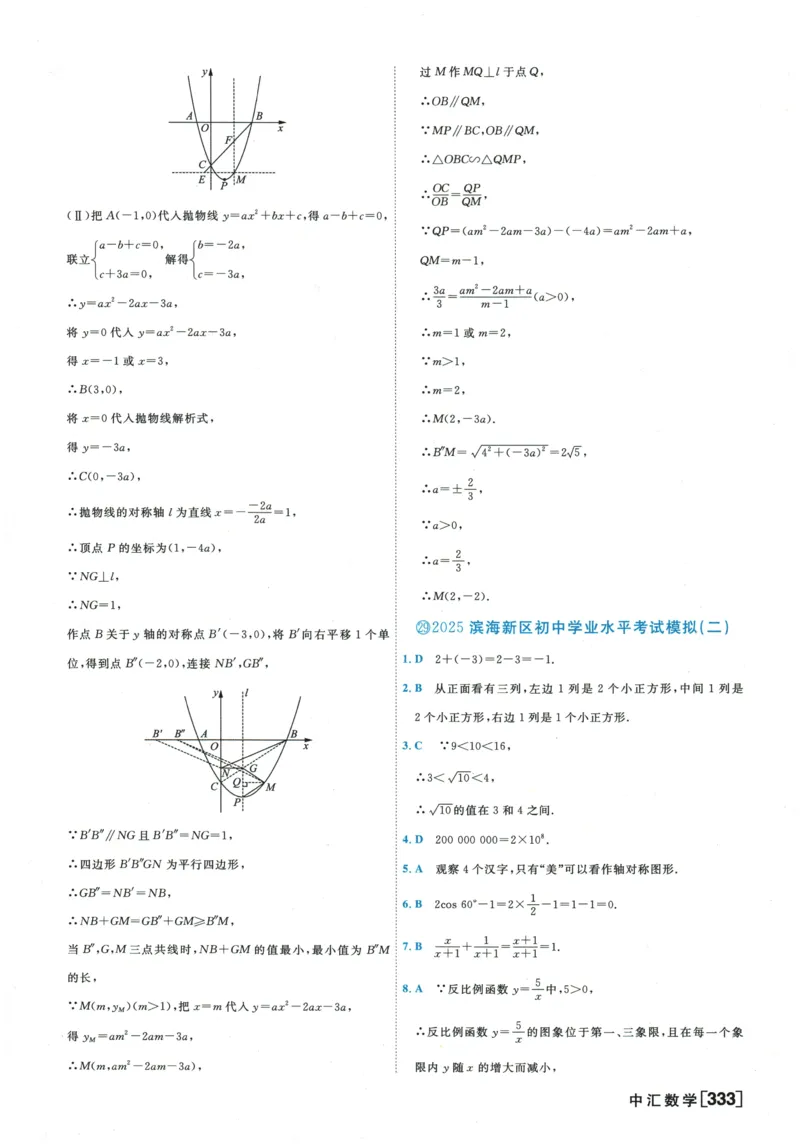 y
A
O
B
x
F
C
E
P
M
(Ⅱ)把 A(-1,0)代入抛物线 y=ax²+bx+c,得 a-b+c=0,
联立{a-b+c=0, c+3a=0, 解得{b=-2a, c=-3a,
∴y=ax²-2ax-3a,
将 y=0 代入 y=ax²-2ax-3a,
得 x=-1 或 x=3,
∴B(3,0),
将 x=0 代入抛物线解析式,
得 y=-3a,
∴C(0,-3a),
∴抛物线的对称轴 l 为直线 x=-\frac{-2a}{2a}=1,
∴顶点 P 的坐标为(1,-4a),
∵NG⊥l,
∴NG=1,
作点 B 关于 y 轴的对称点 B′(-3,0),将 B′向右平移 1 个单
位,得到点 B″(-2,0),连接 NB′,GB″,
y
l
B′
B″
A
O
B
x
N
G
C
Q
M
P
∵B′B″∥NG 且 B′B″=NG=1,
∴四边形 B′B″GN 为平行四边形,
∴GB″=NB′=NB,
∴NB+GM=GB″+GM≥B″M,
当 B″,G,M 三点共线时,NB+GM 的值最小,最小值为 B″M
的长,
∵M(m,y_M)(m>1),把 x=m 代入 y=ax²-2ax-3a,
得 y_M=am²-2am-3a,
∴M(m,am²-2am-3a),
过 M 作 MQ⊥l 于点 Q,
∴OB∥QM,
∵MP∥BC,OB∥QM,
∴△OBC∽△QMP,
∴\frac{OC}{OB}=\frac{QP}{QM},
∵QP=(am²-2am-3a)-(-4a)=am²-2am+a,
QM=m-1,
∴\frac{3a}{3}=\frac{am²-2am+a}{m-1}(a>0),
∴m=1 或 m=2,
∵m>1,
∴m=2,
∴M(2,-3a).
∴B″M=√(4²+(-3a)²)=2√5,
∴a=±\frac{2}{3},
∵a>0,
∴a=\frac{2}{3},
∴M(2,-2).
㉙2025 滨海新区初中学业水平考试模拟(二)
1. D 2+(-3)=2-3=-1.
2. B 从正面看有三列,左边 1 列是 2 个小正方形,中间 1 列是
2 个小正方形,右边 1 列是 1 个小正方形.
3. C ∵9<10<16,
∴3<√10<4,
∴√10的值在 3 和 4 之间.
4. D 200 000 000=2×10⁸.
5. A 观察 4 个汉字,只有“美”可以看作轴对称图形.
6. B 2cos 60°-1=2×\frac{1}{2}-1=1-1=0.
7. B \frac{x}{x+1}+\frac{1}{x+1}=\frac{x+1}{x+1}=1.
8. A ∵反比例函数 y=\frac{5}{x}中,5>0,
∴反比例函数 y=\frac{5}{x}的图象位于第一、三象限,且在每一个象
限内 y 随 x 的增大而减小,
中汇数学[333]